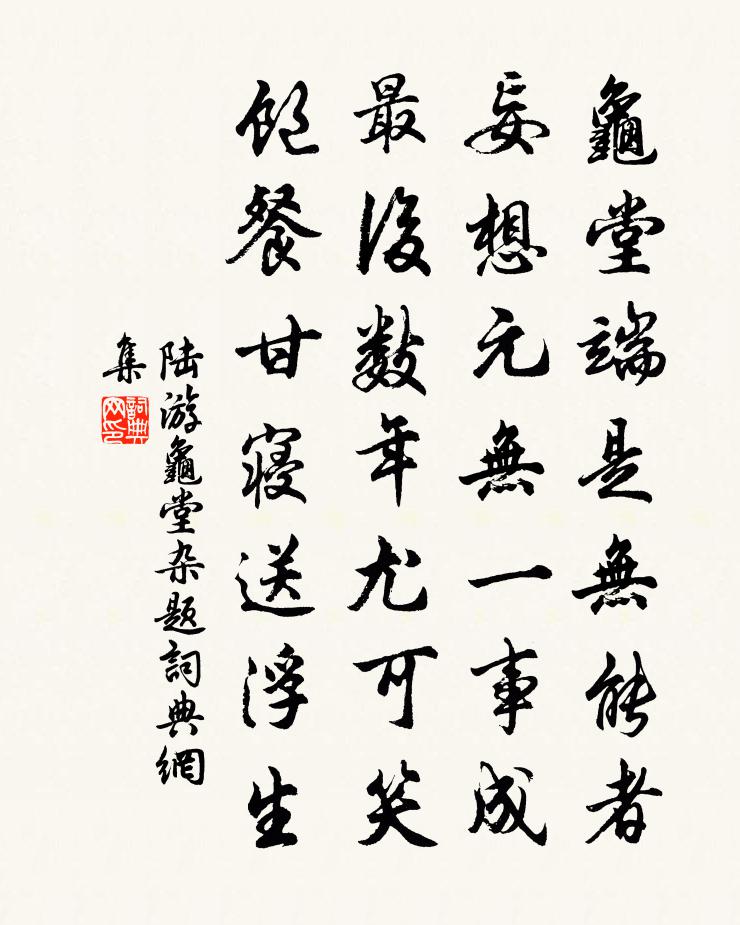 龜堂端是無能者
妄想元無一事成
最後數年尤可笑
飽餐甘寢送浮生
陆游龜堂杂题詞典網
集
詞典
网印